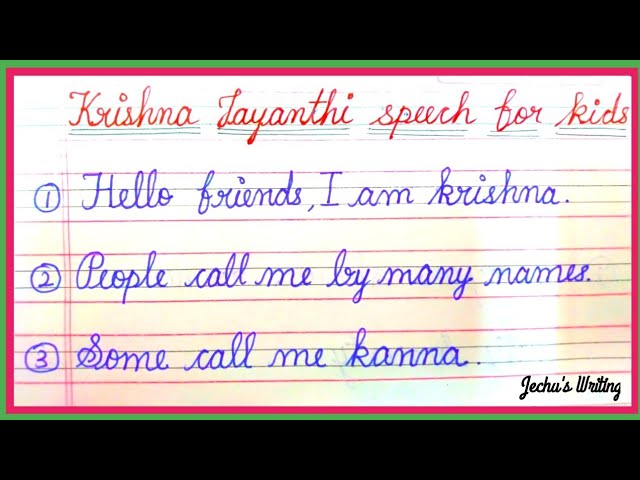 Krishna Jayanthi speech for kids
① Hello friends, I am krishna.
② People call me by many names.
③ Some call me kanna.
Jechu's Writing